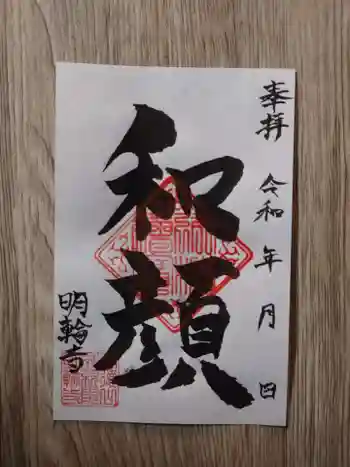 奉拝 令和 年 月 日
和顔
明輪寺